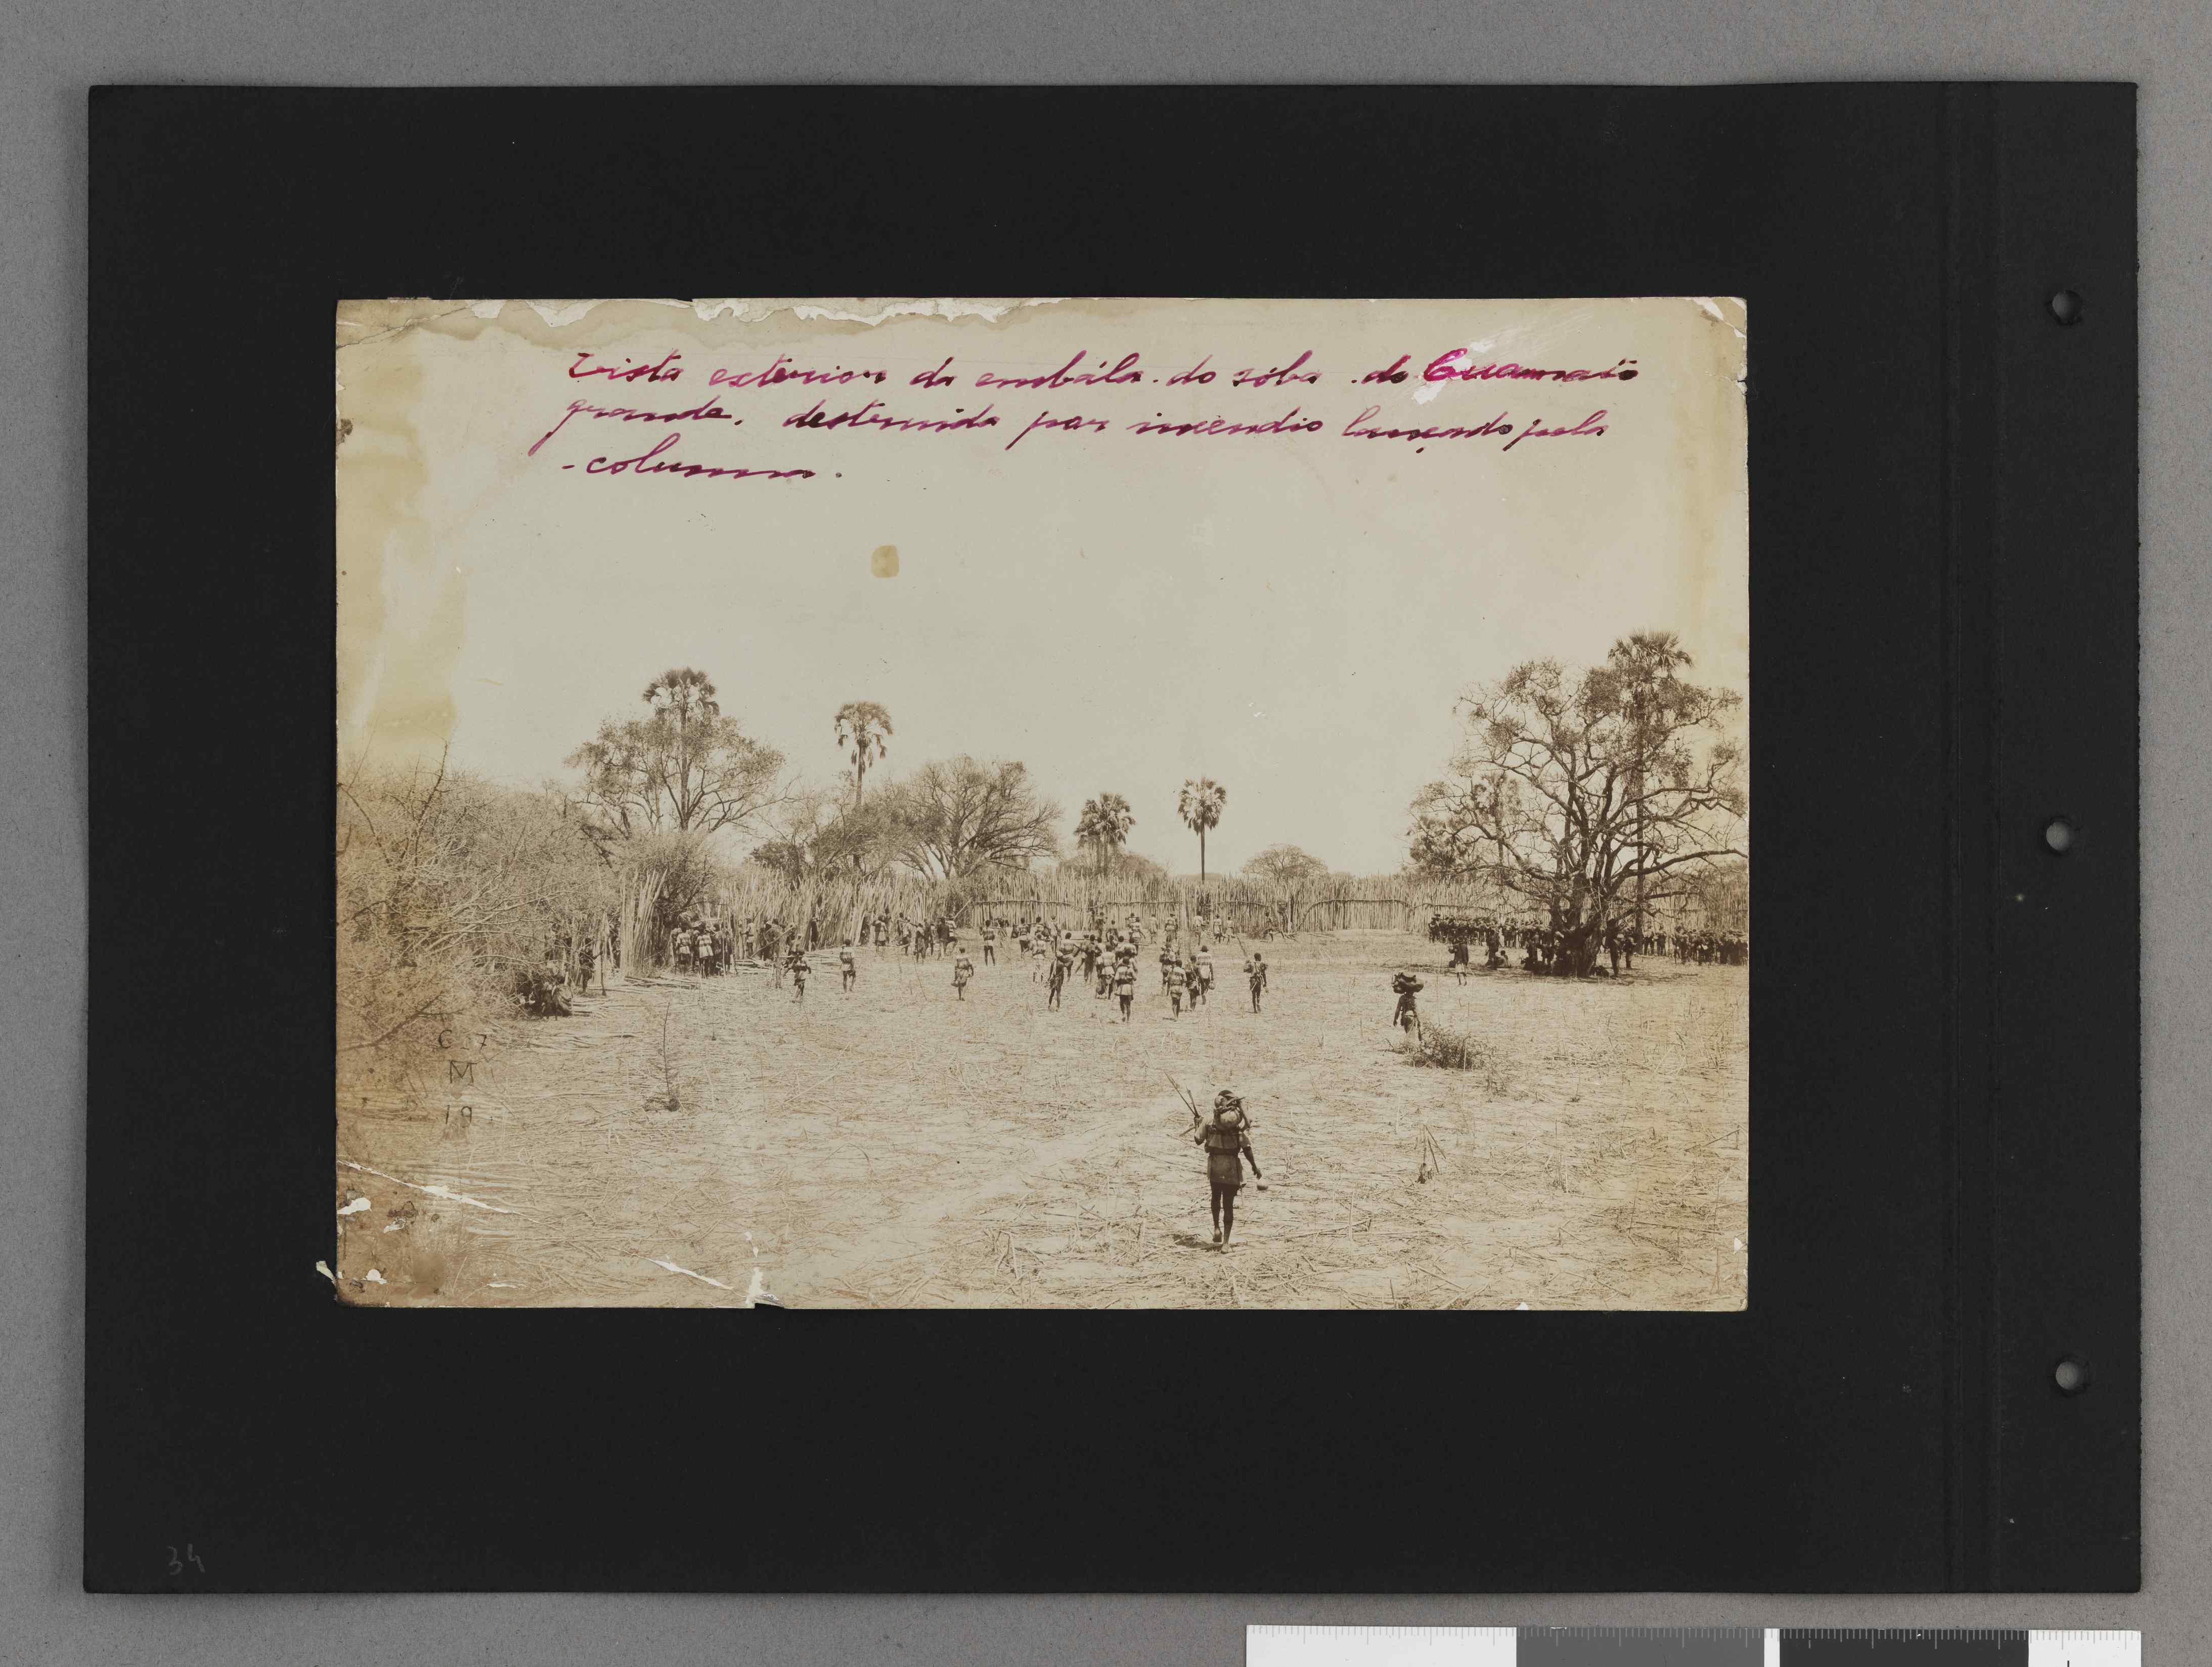 Vista exterior da embála do sóba do Cuamato
grande, destruida por incendio lançado pela
- columna.
C 7
M
19
34